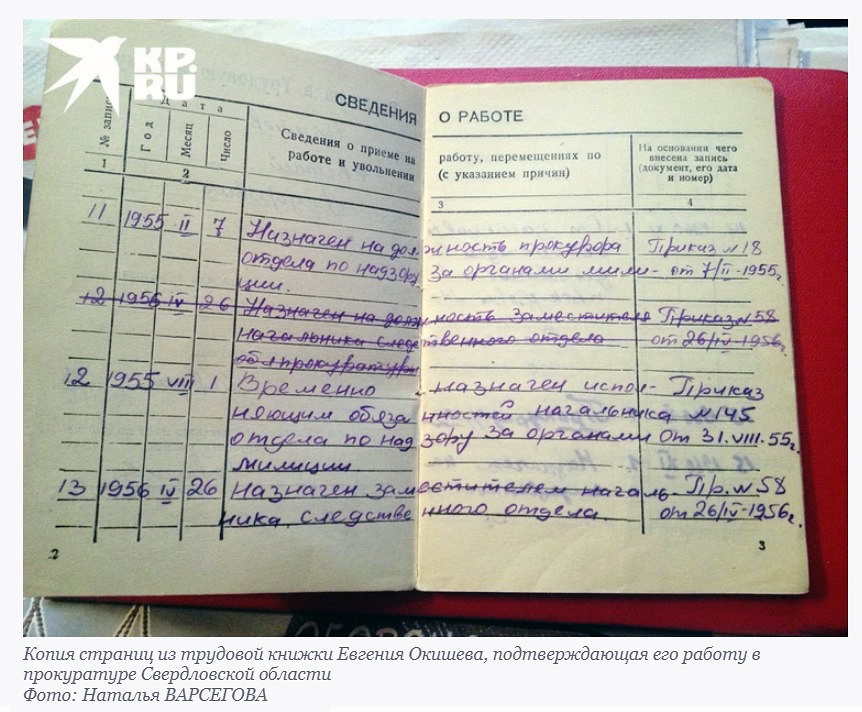 KP.RU
СВЕДЕНИЯ О РАБОТЕ
№ записи
Дата
Год
Месяц
Число
Сведения о приеме на работу, перемещениях по
работе и увольнении (с указанием причин)
На основании чего
внесена запись
(документ, его дата
и номер)
1 2 3 4
11 1955 II 7 Назначен на должность прокурора Приказ №18
отдела по надзору за органами мили- от 7/II-1955г.
ции.
12 1956 IV 26 Назначен на должность заместителя Приказ №58
начальника следственного отдела от 26/IV-1956г.
облпрокуратуры
12 1955 VIII 1 Временно назначен испол- Приказ
няющим обязанностей начальника №145
отдела по надзору за органами от 31.VIII.55г.
милиции
13 1956 IV 26 Назначен заместителем началь- Пр. №58
ника следственного отдела. от 26/IV-1956г.
2 3
Копия страниц из трудовой книжки Евгения Окишева, подтверждающая его работу в
прокуратуре Свердловской области
Фото: Наталья ВАРСЕГОВА